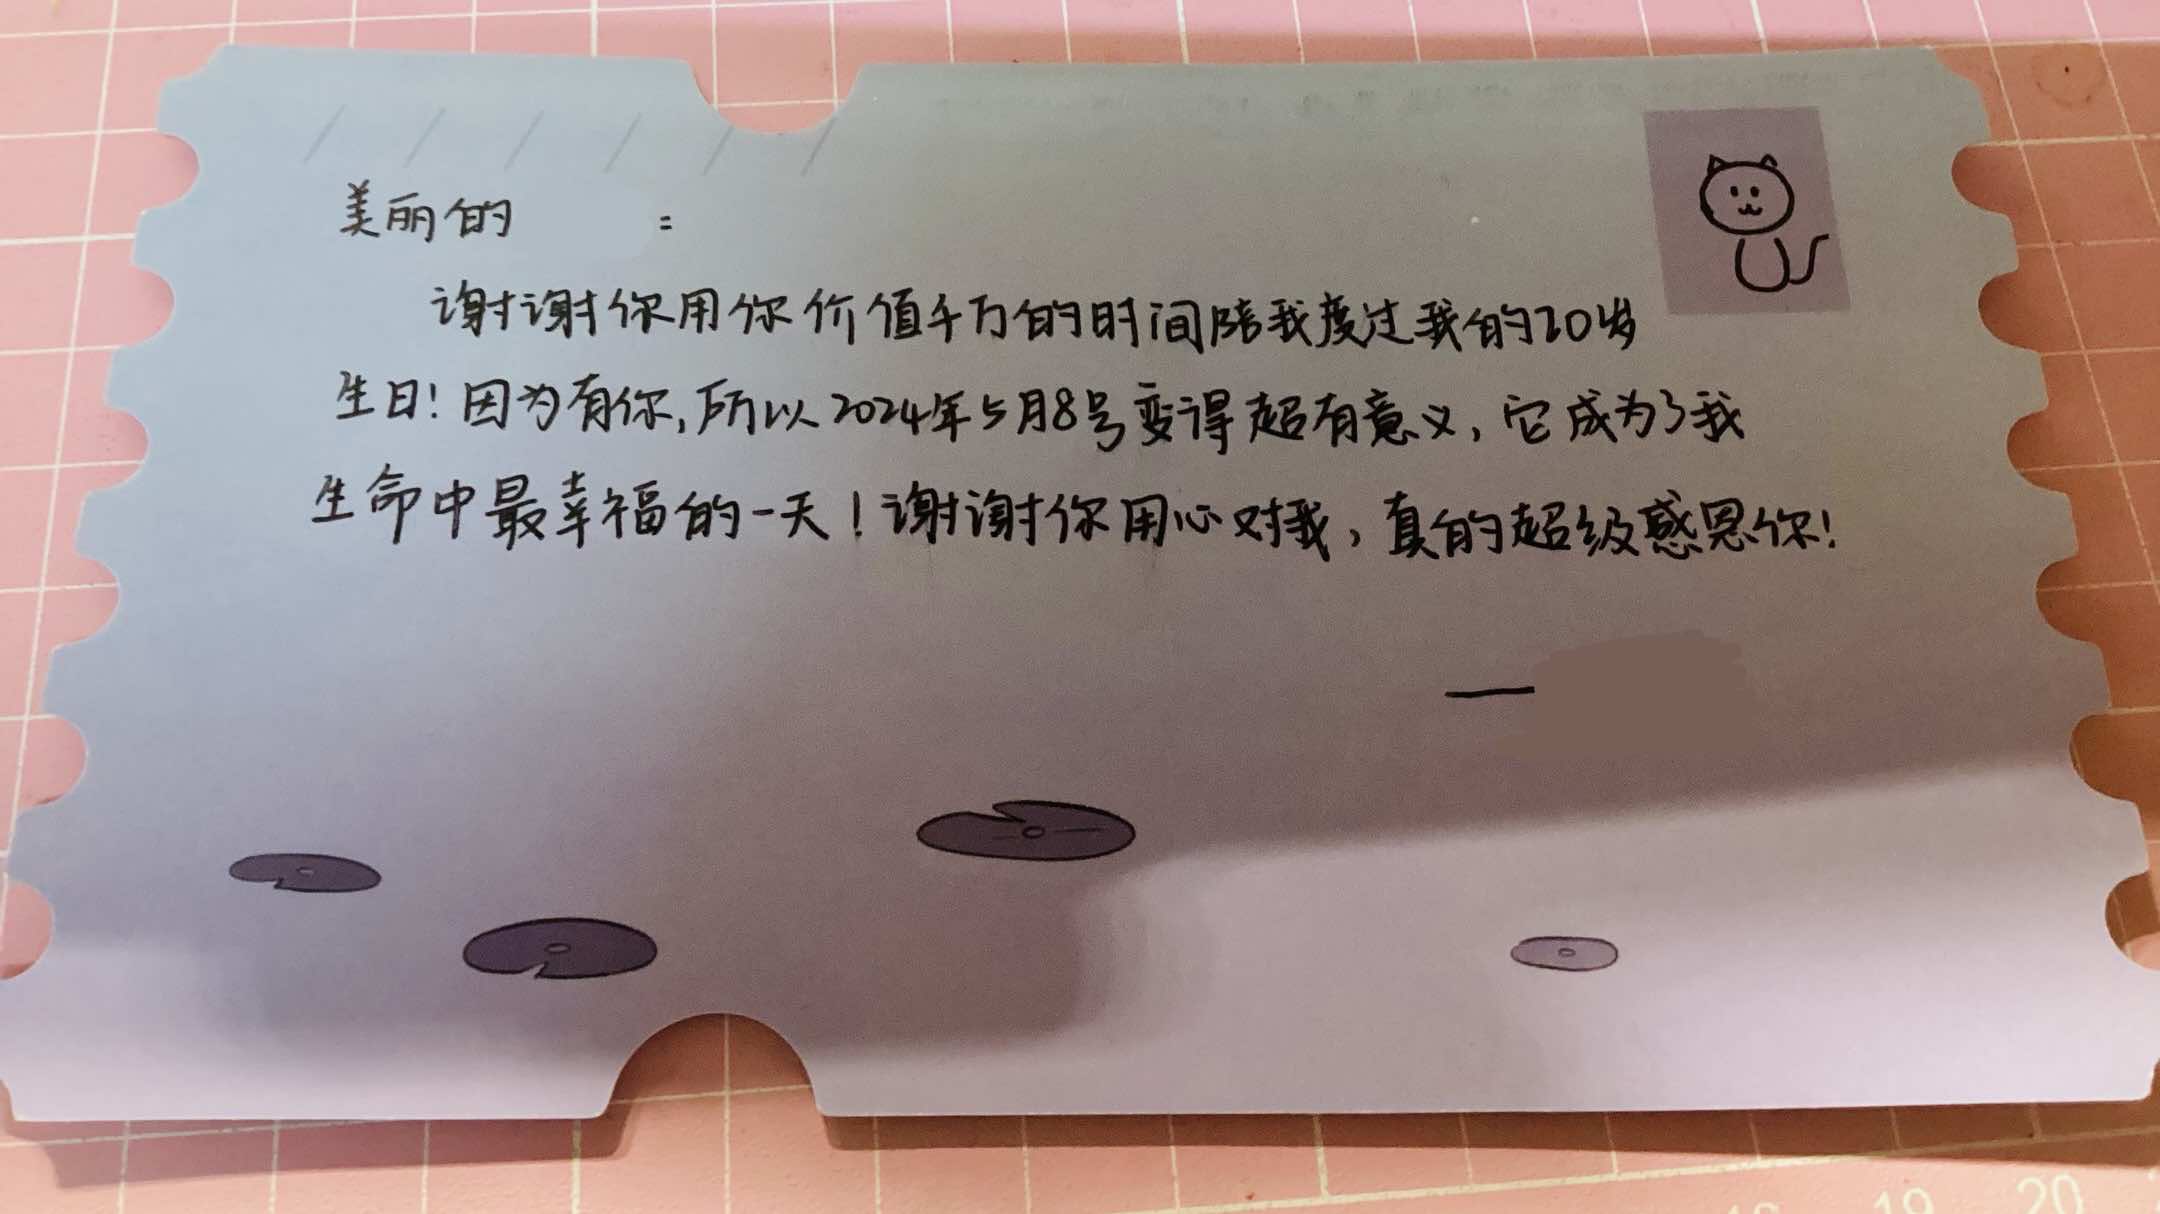 美丽的 :
谢谢你用你价值千万的时间陪我度过我的20岁
生日!因为有你,所以2024年5月8号变得超有意义,它成为了我
生命中最幸福的一天!谢谢你用心对我,真的超级感恩你!
—
19 20